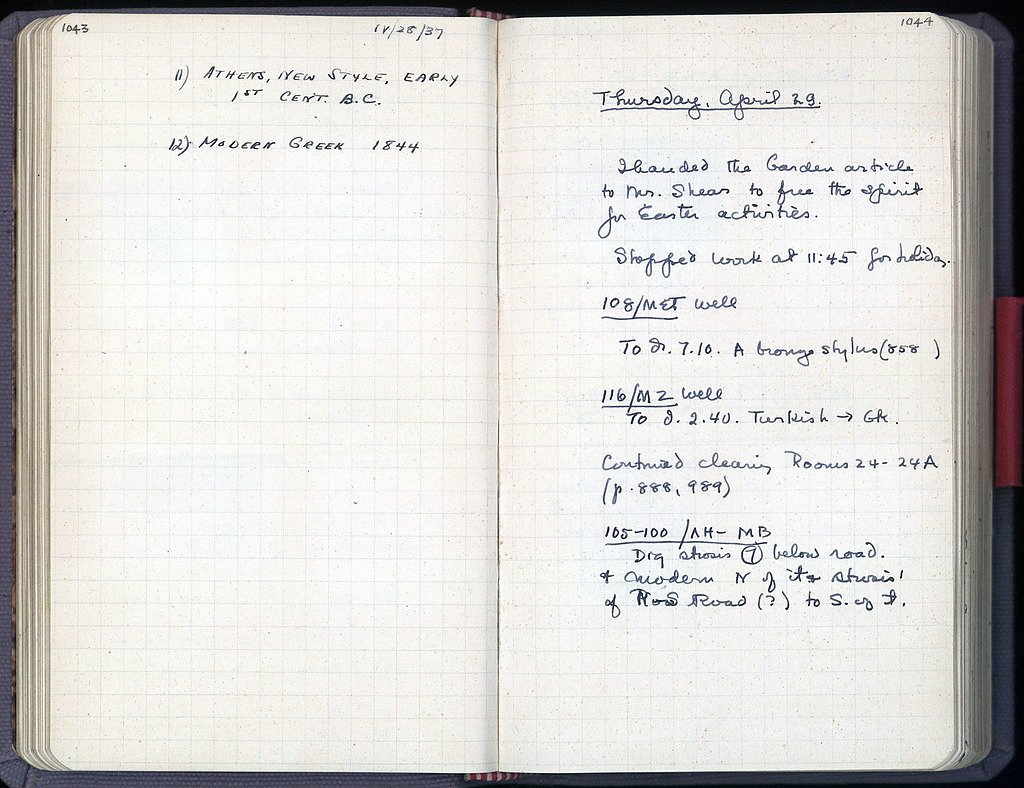 1043
IV/28/37
11) ATHENS, NEW STYLE, EARLY
1ST CENT. B.C.
12) MODERN GREEK 1844
1044
Thursday, April 29.
I handed the Garden article
to Mr. Shear to free the spirit
for Easter activities.
Stopped work at 11:45 for holiday.
108/ME well
To d. 7.10. A bronze stylus (858 )
116/MZ well
To d. 2.40. Turkish → Gk.
Continued clearing Rooms 24-24A
(p. 888, 989)
105-100 /ΛH- MB
Dig strosis 7 below road.
& modern N of it & strosis
of Road (?) to S. of it.